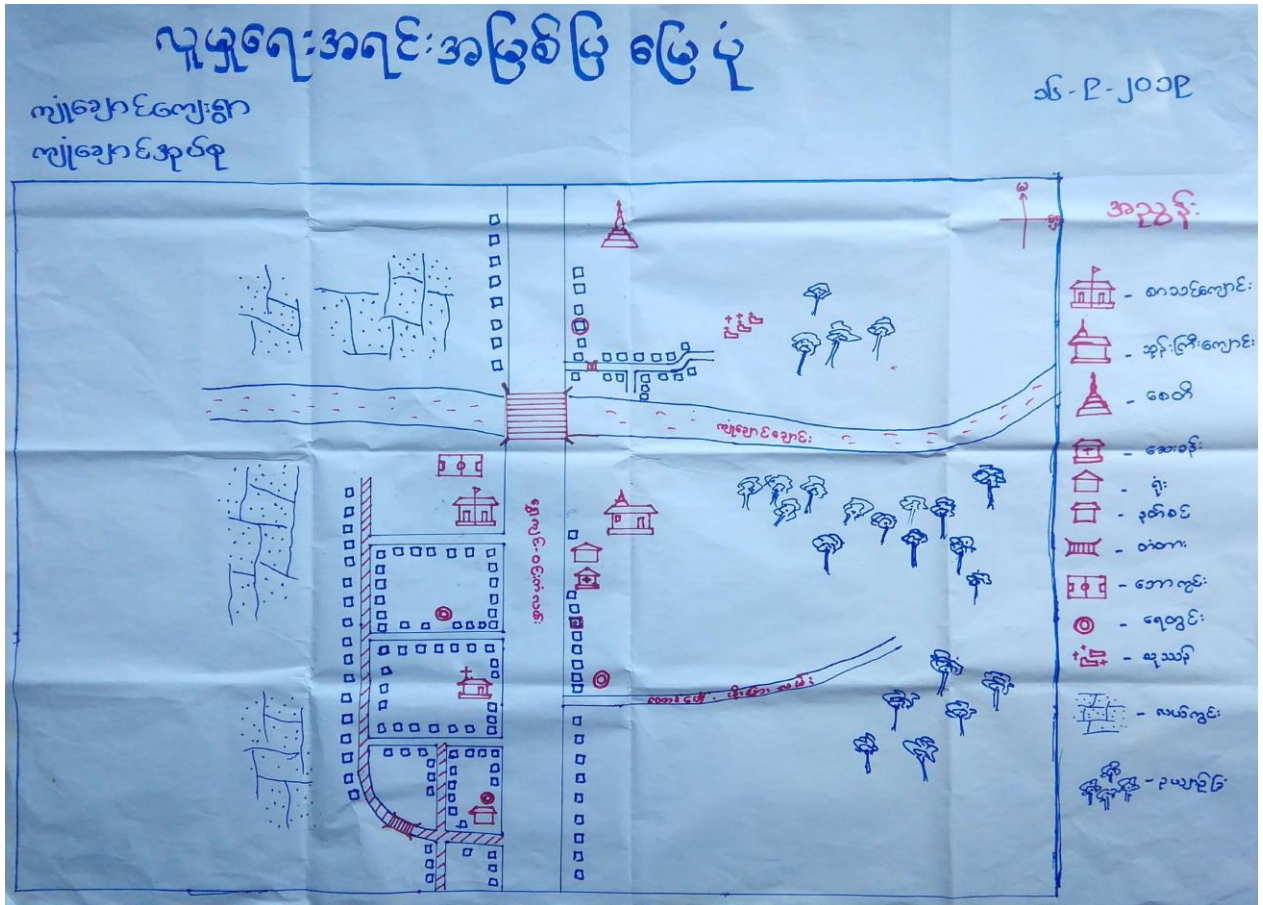 လူမှုရေးအရင်းအမြစ်ပြ မြေပုံ
၁၆-၉-၂၀၁၉
ကျုံချောင်ကျေးရွာ
ကျုံချောင်အုပ်စု
အညွှန်း
စာသင်ကျောင်း
ဘုန်းကြီးကျောင်း
စေတီ
ဆေးခန်း
ရုံး
နတ်စင်
တံတား
ဘောကွင်း
ရေတွင်း
သုဿန်
လယ်ကွင်း
ဥယျာဉ်ခြံ
ကျုံချောင်ချောင်း